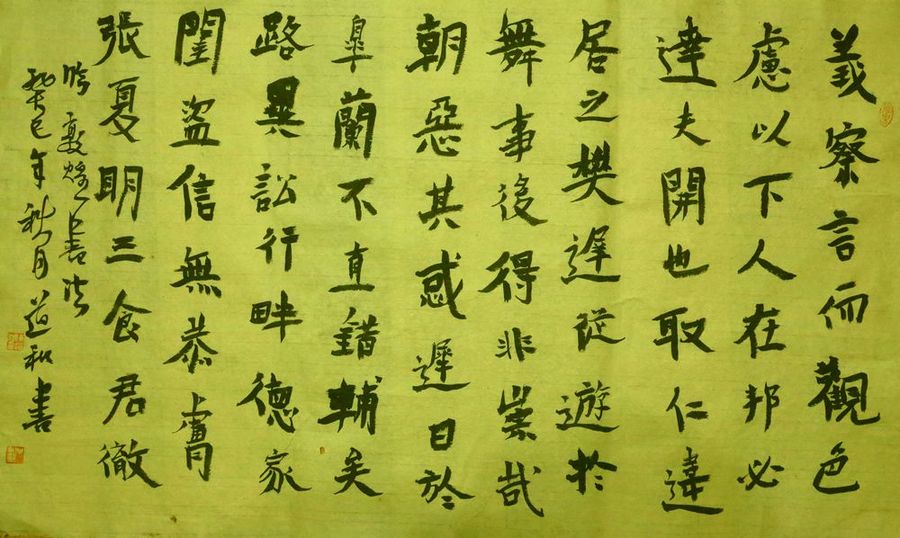 義察言而觀色
慮以下人在邦必
達夫開也取仁違
居之樊遲從遊於
舞事後得非崇哉
朝惡其惑遲日於
皐蘭不直錯輔矣
路異訟行畔德家
閨盜信無恭膚
張夏明三食君徹
臨敦煌書法
癸巳年秋月道和書